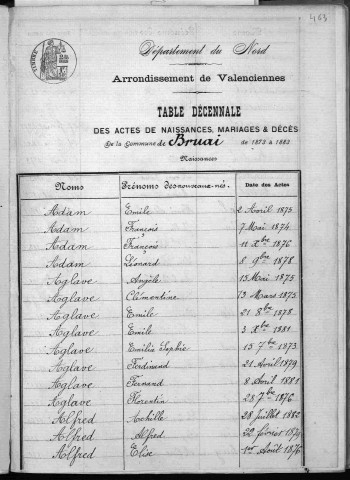 463
TIMBRE
Département du Nord
Arrondissement de Valenciennes
TABLE DÉCENNALE
DES ACTES DE NAISSANCES, MARIAGES & DÉCÈS
De la Commune de Bruai de 1873 à 1883
Naissances
Noms Prénoms des nouveaux-nés. Date des Actes
Adam Emile 2 Avril 1873
Adam François 7 Mai 1874
Adam François 11 Xbre 1876
Adam Léonard 8 9bre 1878
Aglave Angèle 13 Mai 1873
Aglave Clémentine 13 Mars 1875
Aglave Emile 21 8bre 1878
Aglave Emile 3 Xbre 1881
Aglave Emilie Sophie 15 7bre 1873
Aglave Ferdinand 21 Avril 1879
Aglave Fernand 8 Avril 1881
Aglave Florentin 28 7bre 1876
Alfred Achille 28 Juillet 1882
Alfred Alfred 22 février 1879
Alfred Elise 1er Août 1876